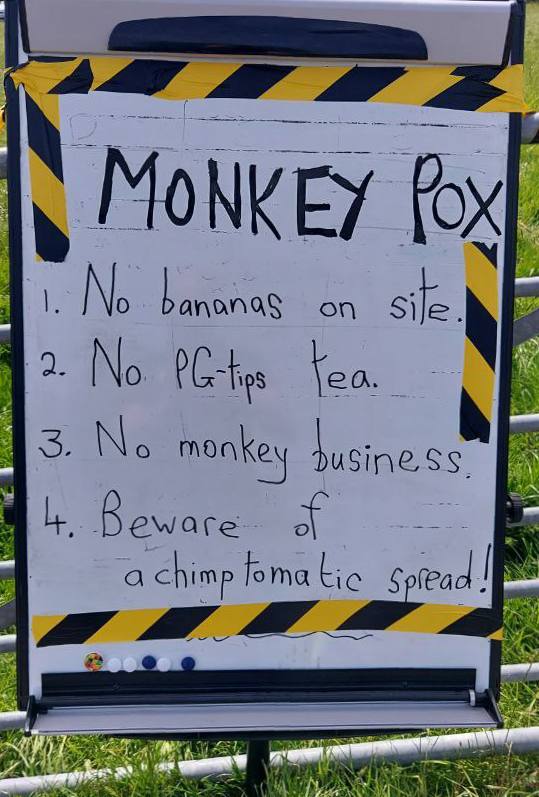 MONKEY POX
1. No bananas on site.
2. No PG-tips tea.
3. No monkey business.
4. Beware of
achimptomatic spread!